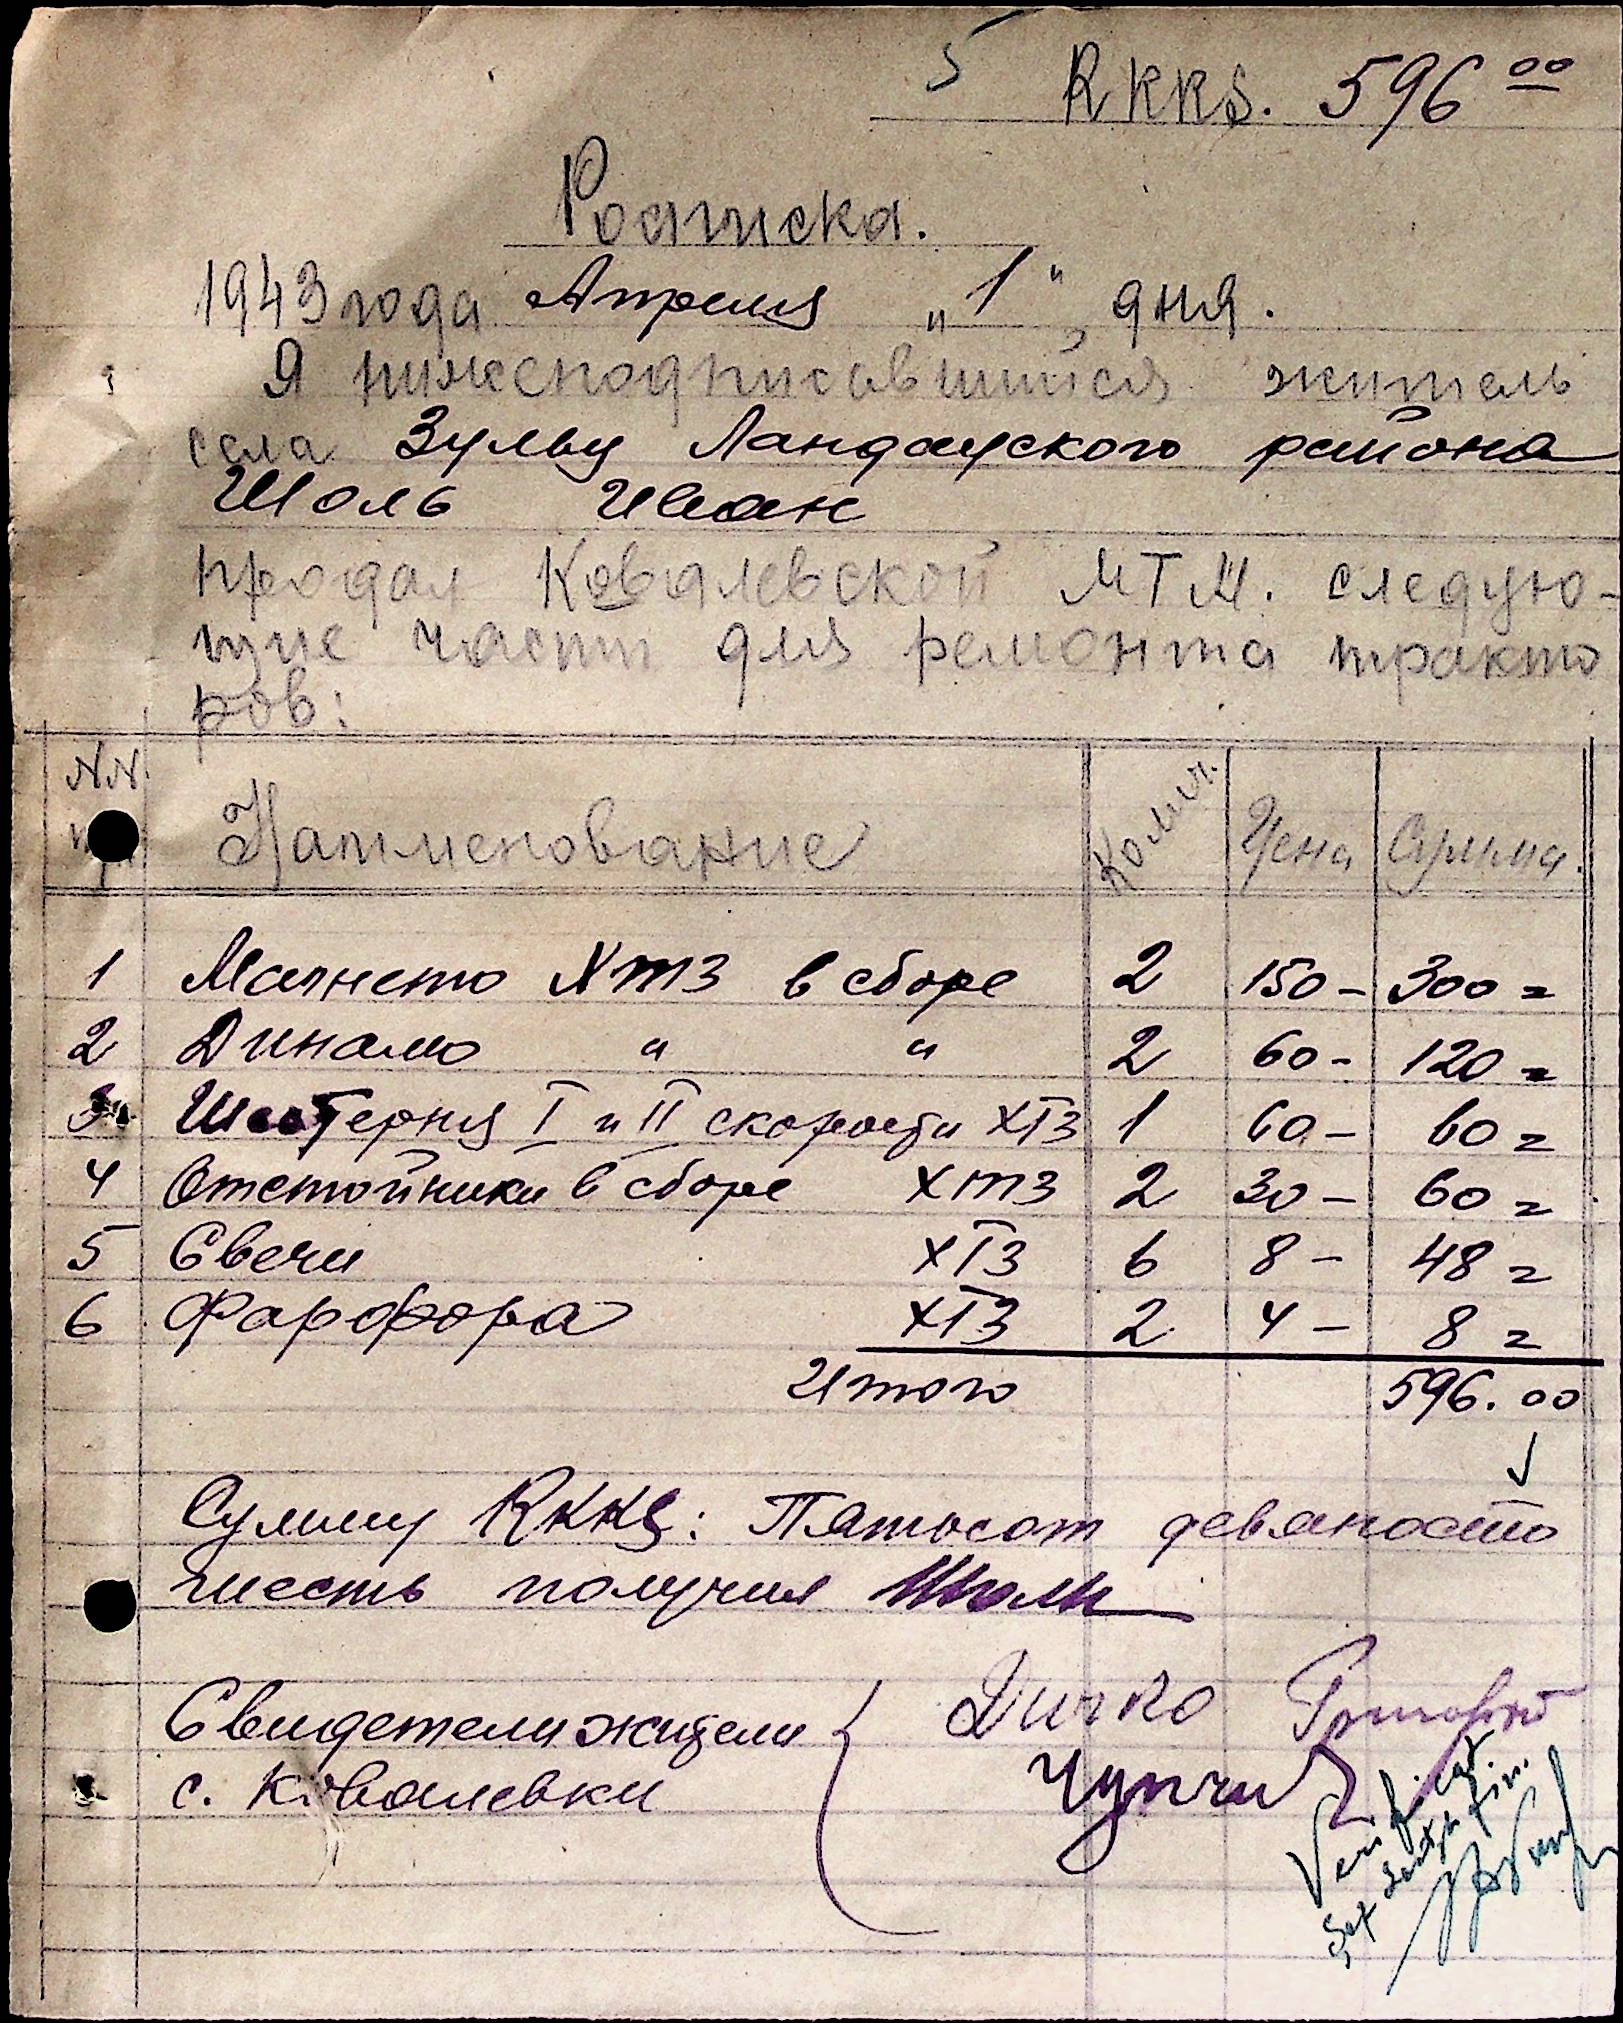 5 RKKS. 596 00
Расписка.
1943 года Апреля "1" дня.
Я нижеподписавшийся житель
села Зульц Ландауского района
Шоль Иван
продал Ковалевской МТМ. следую-
щие части для ремонта тракто
ров:
№№ Наименование Колич. Цена Сумма.
1 Магнето ХТЗ в сборе 2 150- 300=
2 Динамо " " 2 60- 120=
3 Шестерня I и II скорости ХТЗ 1 60- 60=
4 Отстойники в сборе ХТЗ 2 30- 60=
5 Свечи ХТЗ 6 8- 48=
6 Фарфора ХТЗ 2 4- 8=
Итого 596.00
Сумму RKKS: Пятьсот девяносто
шесть получил Шоль
Свидетели жители Дичко Григорий
с. Ковалевки
Verificat